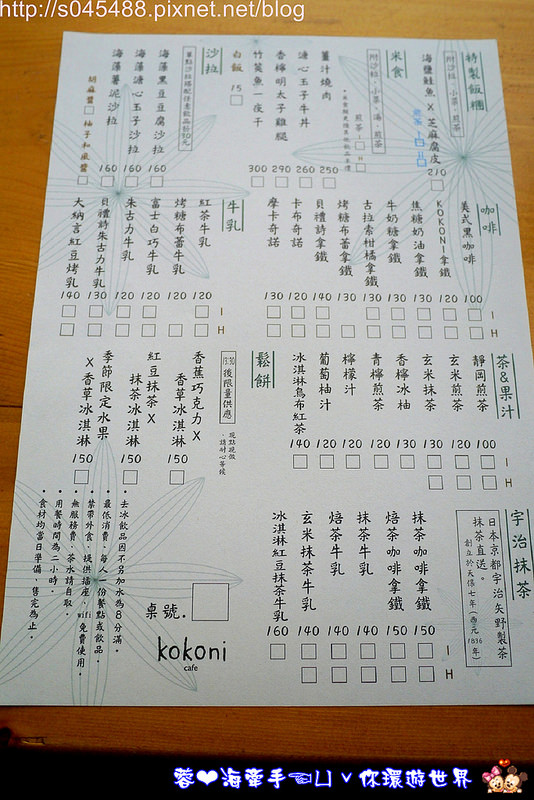 http://s045488.pixnet.net/blog
特製飯糰
附沙拉、小菜、煎茶
海鹽鮭魚 X 芝麻腐皮 210
米食
附沙拉、小菜、湯、煎茶
煎茶 I H
薑汁燒肉 250
溏心玉子牛丼 260
香檸明太子雞腿 290
竹筴魚一夜干 300
白飯 15
沙拉
單點沙拉搭配任意飲品折10元
海藻黑豆豆腐沙拉 160
海藻溏心玉子沙拉 160
海藻薯泥沙拉 160
胡麻醬 柚子和風醬
咖啡
美式黑咖啡 100
KOKONI拿鐵 120
焦糖奶油拿鐵 130
牛奶糖拿鐵 130
古拉索柑橘拿鐵 130
烤糖布蕾拿鐵 130
貝禮詩拿鐵 140
卡布奇諾 120
摩卡奇諾 130
I
H
牛乳
紅茶牛乳 120
烤糖布蕾牛乳 120
富士白巧牛乳 120
朱古力牛乳 120
貝禮詩朱古力牛乳 130
大納言紅豆烤乳 140
I
H
茶&果汁
靜岡煎茶 100
玄米煎茶 120
玄米抹茶 130
香檸冰柚 120
青檸煎茶 130
檸檬汁 120
葡萄柚汁 120
冰淇淋烏布紅茶 140
I
H
鬆餅
13:30後限量供應
現點現做、請耐心等候
香蕉巧克力X
香草冰淇淋 150
紅豆抹茶X
抹茶冰淇淋 150
季節限定水果
X香草冰淇淋 150
宇治抹茶
日本京都宇治矢野製茶
抹茶直送。
創立於天保七年(西元1836年)
抹茶咖啡拿鐵 150
焙茶咖啡拿鐵 150
抹茶牛乳 140
焙茶牛乳 140
玄米抹茶牛乳 140
冰淇淋紅豆抹茶牛乳 160
I
H
桌號.
kokoni
cafe
・去冰飲品因不另加水為8分滿。
・最低消費，每人一份餐點或飲品。
・禁帶外食，提供插座、wifi免費使用。
・無服務費，茶水請自取。
・用餐時間為二小時。
・食材均當日準備，售完為止。
蓉❤海牽手☜凵ˇ你環遊世界